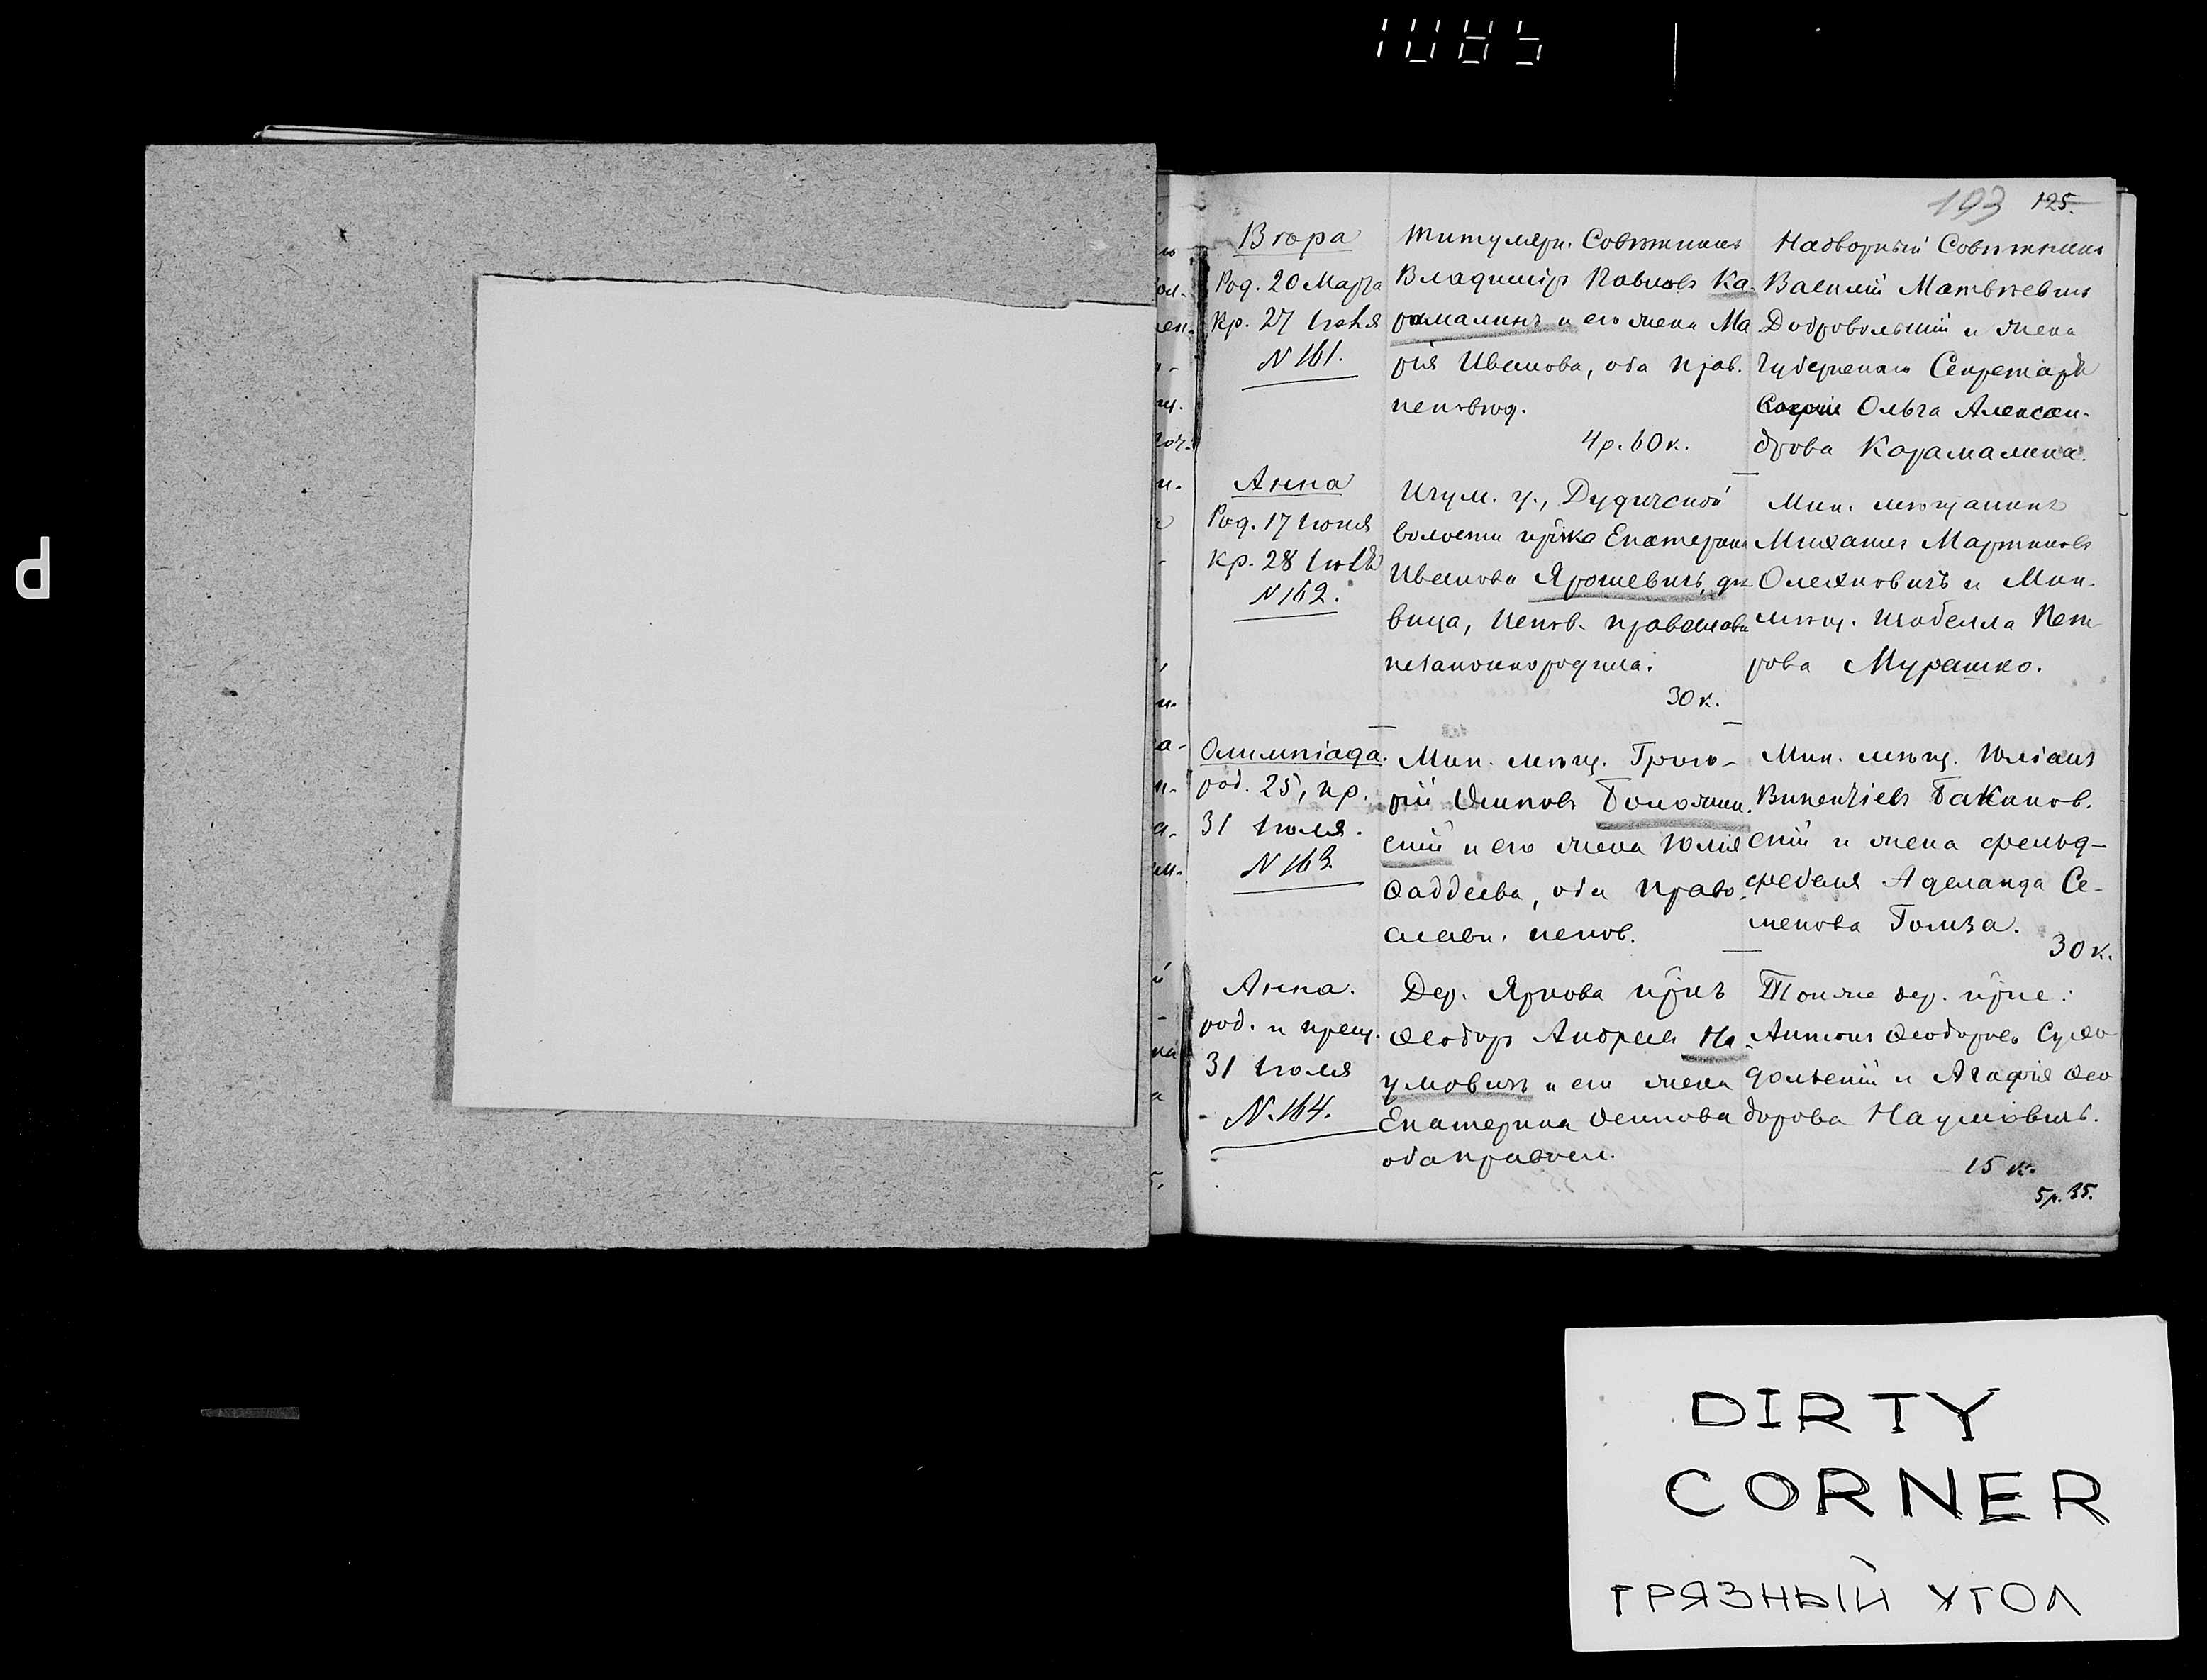 1085
193 125.
Вѣра
Род. 20 Марта
Кр. 27 Іюля
N 161.
Титулярн. Совѣтникъ
Владиміръ Павловъ Ка-
рамалинъ и его жена Ма
рія Иванова, оба прав.
исповѣд.
4 р. 60 к.
Надворный Совѣтникъ
Василій Матвѣевичъ
Добровольскій и жена
Губернскаго Секретаря
Ольга Алексан-
дрова Карамалина.
Анна
Род. 17 Іюня
Кр. 28 Іюля
N 162.
Игум. у., Дудичской
волости кр-нка Екатерина
Иванова Ярошевичъ, дѣ-
вица, испов. православн
незаконнородила.
30 к.
Мин. мѣщанинъ
Михаилъ Мартиновъ
Олехновичъ и Мин.
мѣщ. Изабелла Пет
рова Мурашко.
Олимпіада.
род. 25, кр.
31 Іюля.
N 163.
Мин. мѣщ. Григо-
рій Осиповъ
скій и его жена Юлія
Ѳаддеева, оба право-
славн. испов.
Мин. мѣщ. Юліанъ
Викентіевъ Бакинов.
скій и жена фельд-
фебеля Аделаида Се-
менова Гомза.
30 к.
Анна.
род. и крещ.
31 Іюля
N. 164.
Дер. Яркова кр-нъ
Ѳеодоръ Андреевъ На-
умовичъ и его жена
Екатерина Осипова
оба правосл.
Тойже дер. кр-не:
Антонъ Ѳеодоровъ Сухо
дольскій и Агафія Ѳео
дорова Наумовичъ.
15 к.
5 р. 35.
DIRTY
CORNER
ГРЯЗНЫЙ УГОЛ